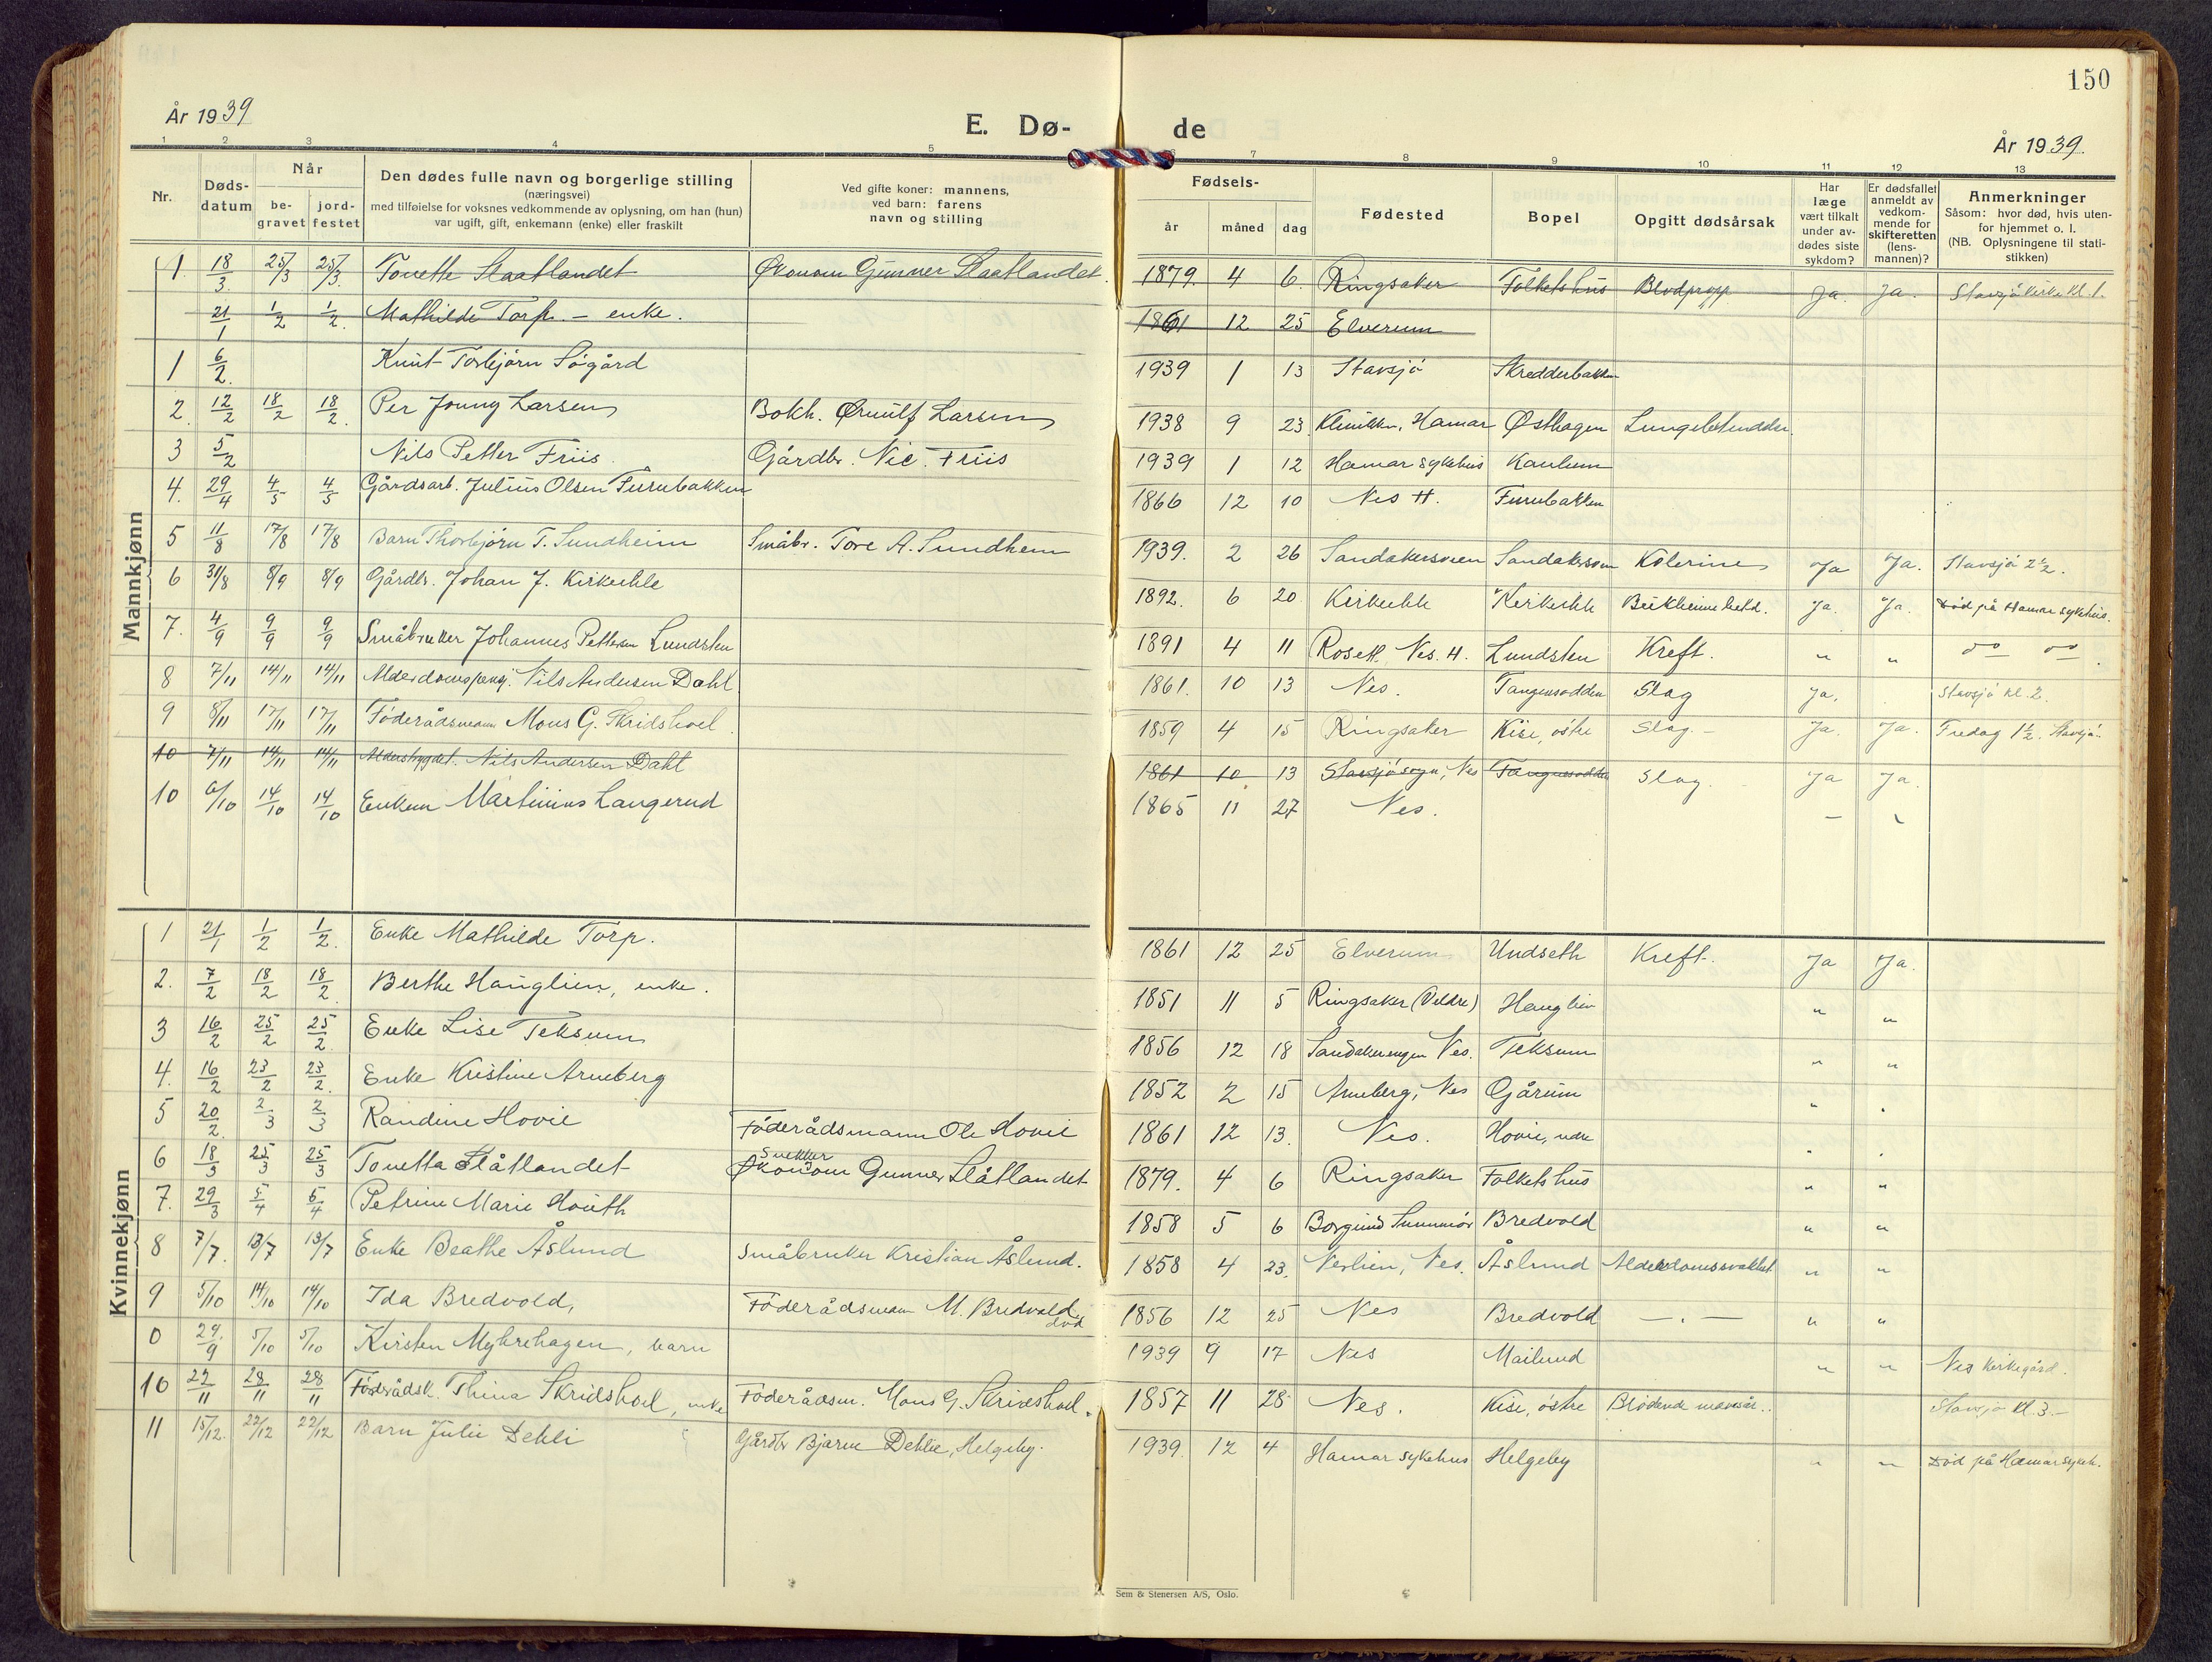 150
År 1939
E. Dø-
de
År 1939.
1 2 3 4 5 6 7 8 9 10 11 12 13
Nr.
Døds-
datum
Når
be-
gravet
jord-
festet
Den dødes fulle navn og borgerlige stilling
(næringsvei)
med tilføielse for voksnes vedkommende av oplysning, om han (hun)
var ugift, gift, enkemann (enke) eller fraskilt
Ved gifte koner: mannens,
ved barn: farens
navn og stilling
Fødsels-
år måned dag
Fødested
Bopel
Opgitt dødsårsak
Har
læge
vært tilkalt
under av-
dødes siste
sykdom?
Er dødsfallet
anmeldt av
vedkom-
mende for
skifteretten
(lens-
mannen)?
Anmerkninger
Såsom: hvor død, hvis uten-
for hjemmet o. l.
(NB. Oplysningene til stati-
stikken)
Mannkjønn
1. 18/3. 25/3 25/3. Tonette Slaatlandet Økonom Gunner Slaatlandet. 1879. 4 6. Ringsaker Folkets hus Blodpropp Ja. Ja. Stavsjø kirke kl. 1.
21/1 1/2 1/2. Mathilde Torp. – enke. 1861 12 25 Elverum
1 6/2. Knut Torbjørn Søgård 1939 1 13 Stavsjø Skredderbakken
2. 12/2 18/2 18/2. Per Jonny Larsen Bokh. Ørnulf Larsen 1938 9 23. Klinikken, Hamar Østhagen Lungebetendelse.
3 5/2 Nils Petter Friis Gårdbr. Nic. Friis 1939 1 12 Hamar sykehus Kanhum
4. 29/4 4/5 4/5 Gårdsarb. Julius Olsen Furubakken 1866 12 10 Nes H. Furubakken
5 11/8 17/8 17/8 Barn Thorbjørn T. Sundheim Småbr. Tore A. Sundheim 1939. 2 26 Sandakersveen Sandakersveen Kolerine Ja Ja. Stavsjø 2½.
6 31/8 8/9 8/9 Gårdbr. Johan J. Kirkeekle 1892. 6 20 Kirkeekle Kirkeekle Bukhinnebetd. Ja. Ja. Død på Hamar sykehus.
7. 4/9 9/9 9/9 Småbruker Johannes Pettersen Lundsten 1891 4 11 Rosetl. Nes. H. Lundsten Kreft. " " do do.
8 7/11 14/11 14/11 Alderdomspensj. Nils Andersen Dahl 1861. 10 13 Nes. Tangensodden Slag Ja. Stavsjø kl. 2.
9 8/11 17/11 17/11 Føderådsmann Mons G. Skridshoel 1859 4 15 Ringsaker Kise, østre Slag. – Ja. Ja. Fredag 1½. Stavsjø.
10 7/11 14/11 14/11 Alderstrygdet. Nils Andersen Dahl 1861 10 13 Stavsjø sogn, Nes Tangensodden Slag. Ja Ja.
10 6/10 14/10 14/10 Enkem Martinius Langerud 1865 11 27 Nes.
Kvinnekjønn
1 21/1 1/2 1/2. Enke Mathilde Torp. 1861 12 25 Elverum Undseth Kreft. Ja Ja.
2. 7/2 18/2 18/2. Berthe Hauglien, enke. 1851 11 5 Ringsaker (Veldre) Hauglien " "
3 16/2 25/2 25/2. Enke Lise Teksum 1856 12 18 Sandakerengen Nes. Teksum " "
4. 16/2 23/2 23/2. Enke Kristine Arneberg 1852 2 15 Arneberg, Nes Gårum " "
5 20/2. 2/3 2/3 Randine Hovie Føderådsmann Ole Hovie 1861 12 13. Nes. Hovie, nedre " "
6 18/3 25/3 25/3 Tonetta Slåtlandet Snekker
Økonom Gunner Slåtlandet 1879. 4 6 Ringsaker Folkets hus " "
7. 29/3 5/4 5/4 Petrine Marie Houth 1858 5 6 Borgund Sunnmør Bredvold " "
8 7/7. 13/7 13/7 Enke Beathe Åslund Småbruker Kristian Åslund. 1858 4 23. Neslien, Nes. Åslund Alderdomssvakhet " "
9 5/10 14/10 14/10 Ida Bredvold, Føderådsmann M. Bredvold
død 1856 12 25 Nes Bredvold — . — " "
0 24/9 5/10 5/10 Kirsten Myhrehagen, barn 1939 9 17 Nes Mailund " " Nes kirkegård.
10 22/11 28/11 28/11 Føderådsk. Thina Skridshoel, enke Føderådsm. Mons G. Skridshoel. 1857 11 28 Nes. Kise, østre Blødende mavesår. Stavsjø kl. 3. –
11 15/12. 22/12 22/12 Barn Julie Dehli Gårdbr Bjarne Dehlie, Helgeby. 1939. 12 4 Hamar sykehus Helgeby " " Død på Hamar sykeh.
Sem & Stenersen A/S, Oslo.